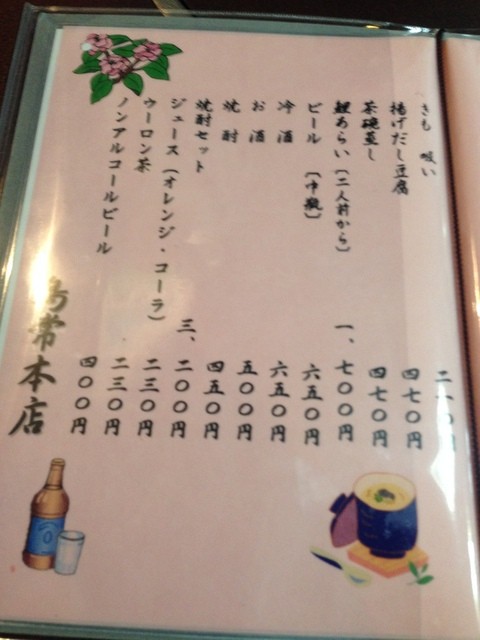 きも吸い 二一〇円
揚げだし豆腐 四七〇円
茶碗蒸し 四七〇円
鯉あらい（二人前から） 一、七〇〇円
ビール（中瓶） 六五〇円
冷酒 六五〇円
お酒 五〇〇円
焼酎 四五〇円
焼酎セット 三、二〇〇円
ジュース（オレンジ・コーラ） 二三〇円
ウーロン茶 二三〇円
ノンアルコールビール 四〇〇円
常本店